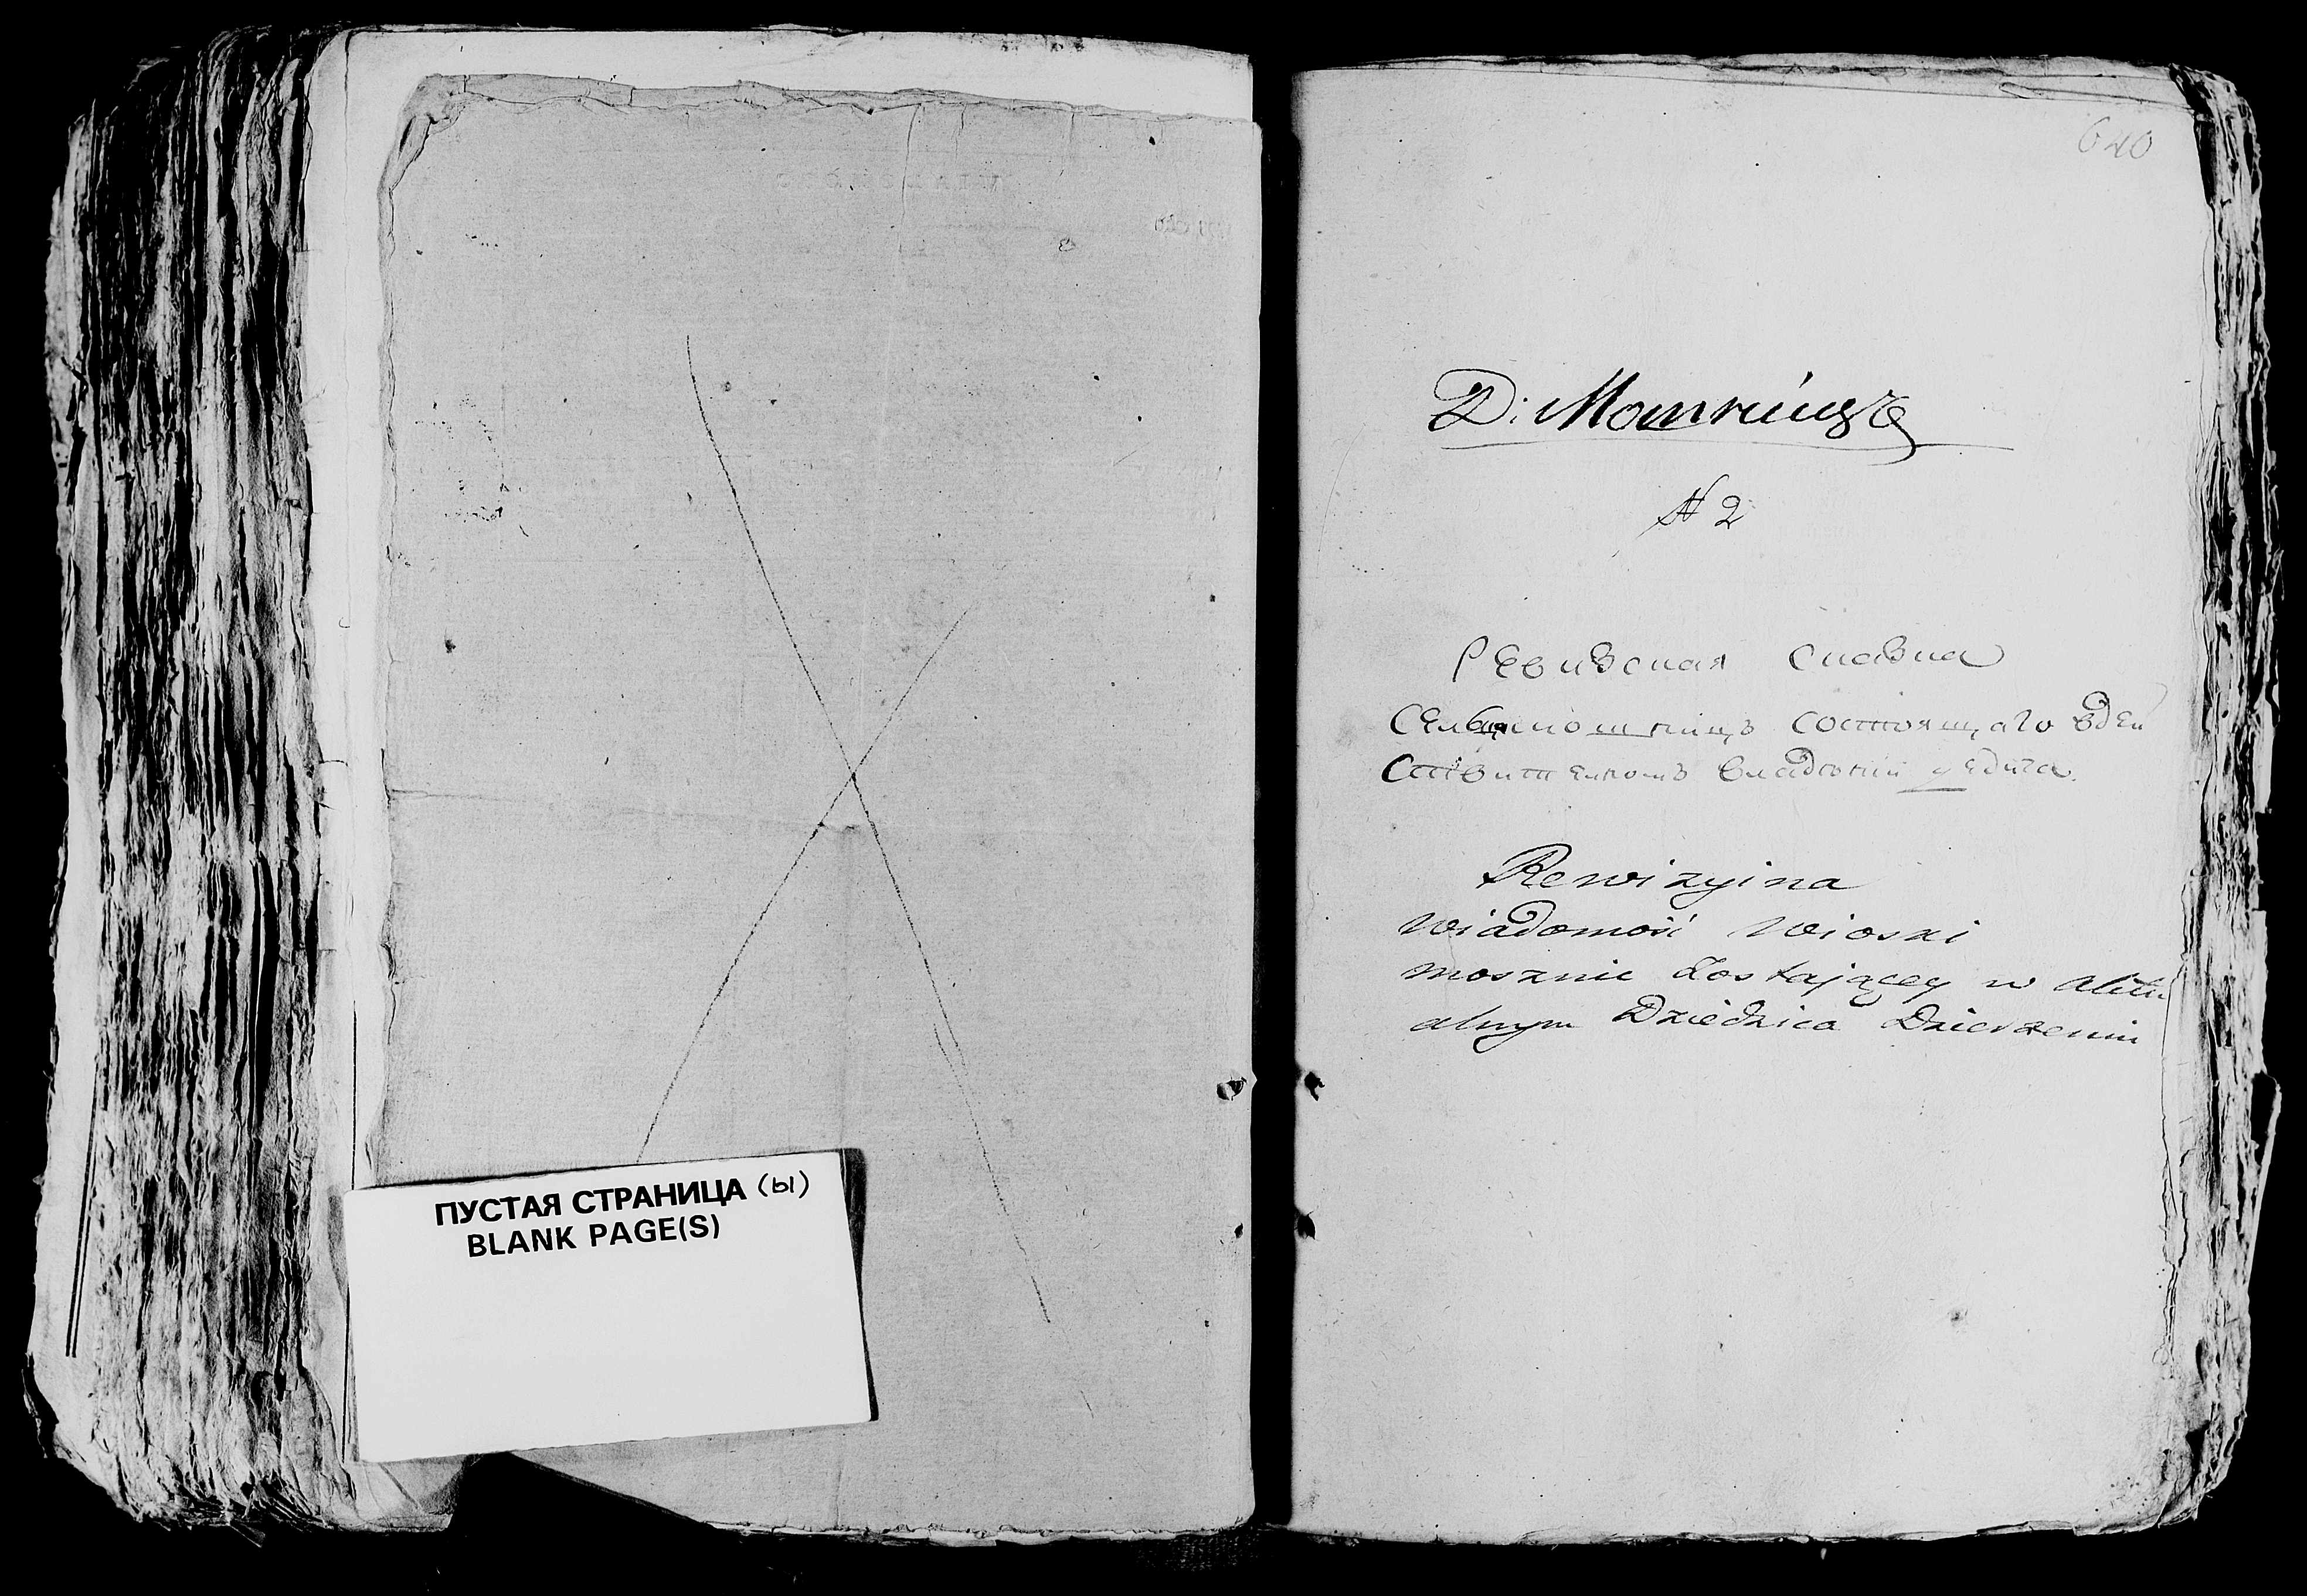 ПУСТАЯ СТРАНИЦА (ы)
BLANK PAGE(S)
620
Д:
N 2
Ревизская сказка
состоящаго вдей
ствителномъ владѣніи дедича.
Rewizyina
Wiadomość Wioski
mosznic Zostającey w Aktu
alnym Dziedzica Dzierżeniu